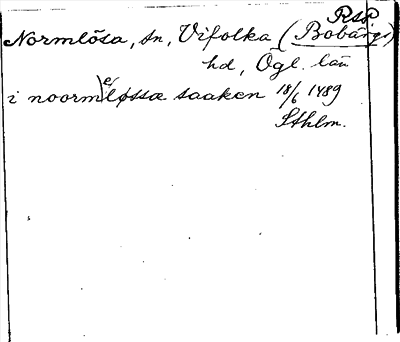 RSP
Normlösa, sn, Vifolka (Bobärgs)
hd, Ögl. län
i noormeløssæ saaken 18/6 1489
Sthlm.